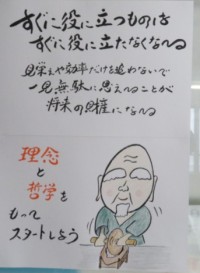 すぐに役に立つものは
すぐに役に立たなくなる
見栄えや効率だけを追わないで
一見無駄に思えることが
将来の財産になる
理念
と
哲学を
もって
スタートしよう